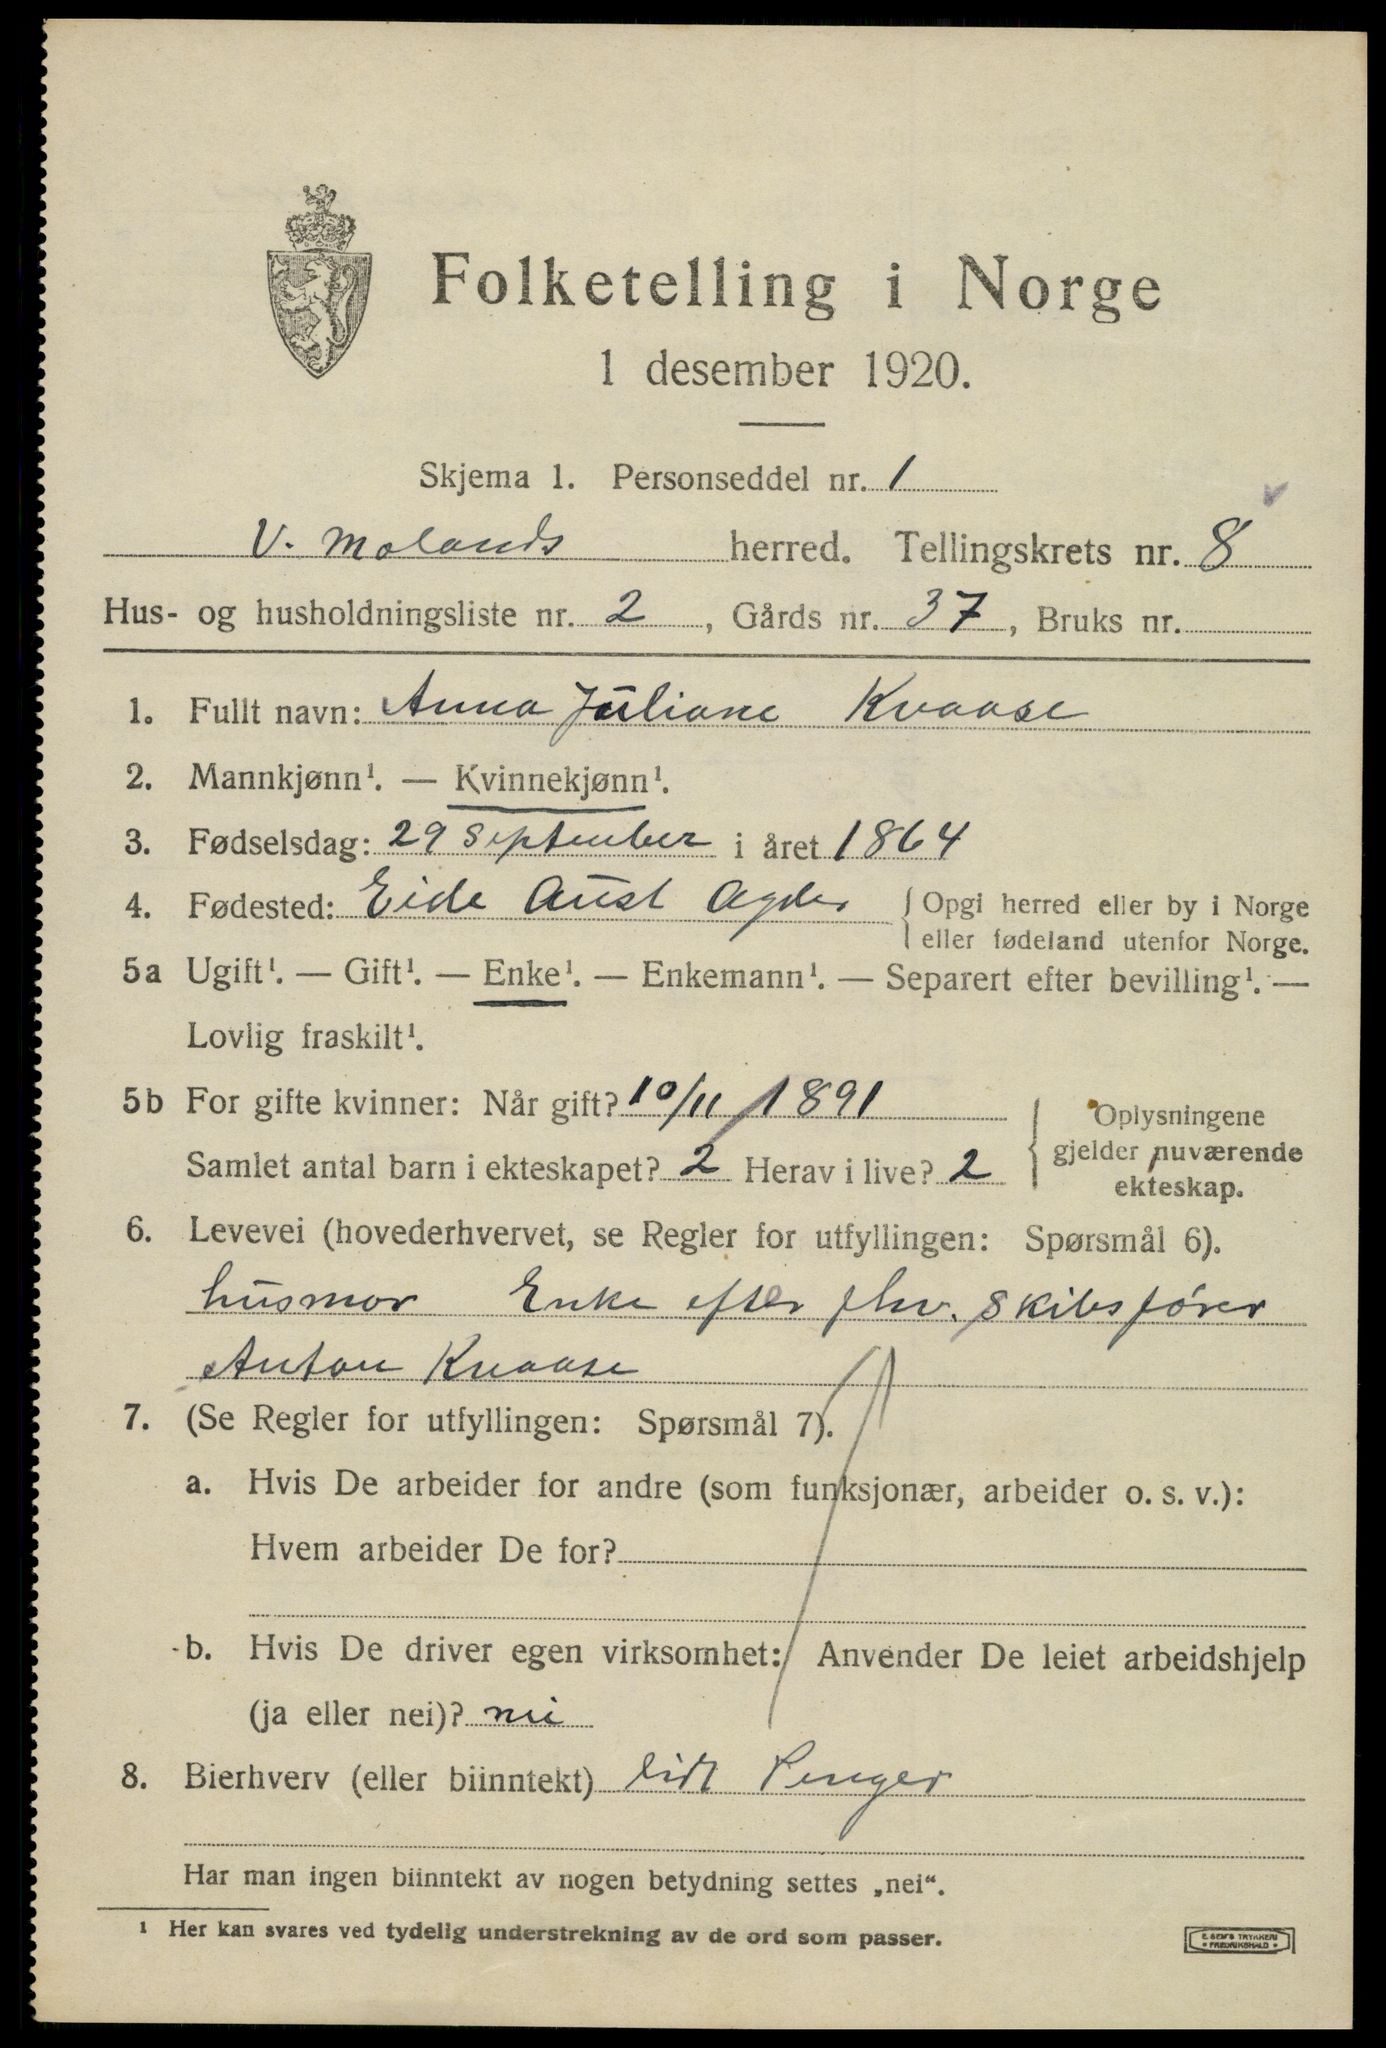 Folketelling i Norge
1 desember 1920.
Skjema 1. Personseddel nr. 1
V. Molands herred. Tellingskrets nr. 8
Hus- og husholdningsliste nr. 2, Gårds nr. 37, Bruks nr.
1. Fullt navn: Anna Juliane Kvaase
2. Mannkjønn¹. — Kvinnekjønn¹.
3. Fødselsdag: 29 September i året 1864
4. Fødested: Eide Aust Agder { Opgi herred eller by i Norge
eller fødeland utenfor Norge.
5a Ugift¹. — Gift¹. — Enke¹. — Enkemann¹. — Separert efter bevilling¹. —
Lovlig fraskilt¹.
5b For gifte kvinner: Når gift? 10/11 1891
Samlet antal barn i ekteskapet? 2 Herav i live? 2
{ Oplysningene
gjelder nuværende
ekteskap.
6. Levevei (hovederhvervet, se Regler for utfyllingen: Spørsmål 6).
husmor Enke efter fhv. skibsfører
Anton Kvaase
7. (Se Regler for utfyllingen: Spørsmål 7).
a. Hvis De arbeider for andre (som funksjonær, arbeider o. s. v.):
Hvem arbeider De for?
b. Hvis De driver egen virksomhet: Anvender De leiet arbeidshjelp
(ja eller nei)? nei
8. Bierhverv (eller biinntekt) lidt Penger
Har man ingen biinntekt av nogen betydning settes „nei“.
¹ Her kan svares ved tydelig understrekning av de ord som passer.
E. SEM'S TRYKKERI
• FREDRIKSHALD •